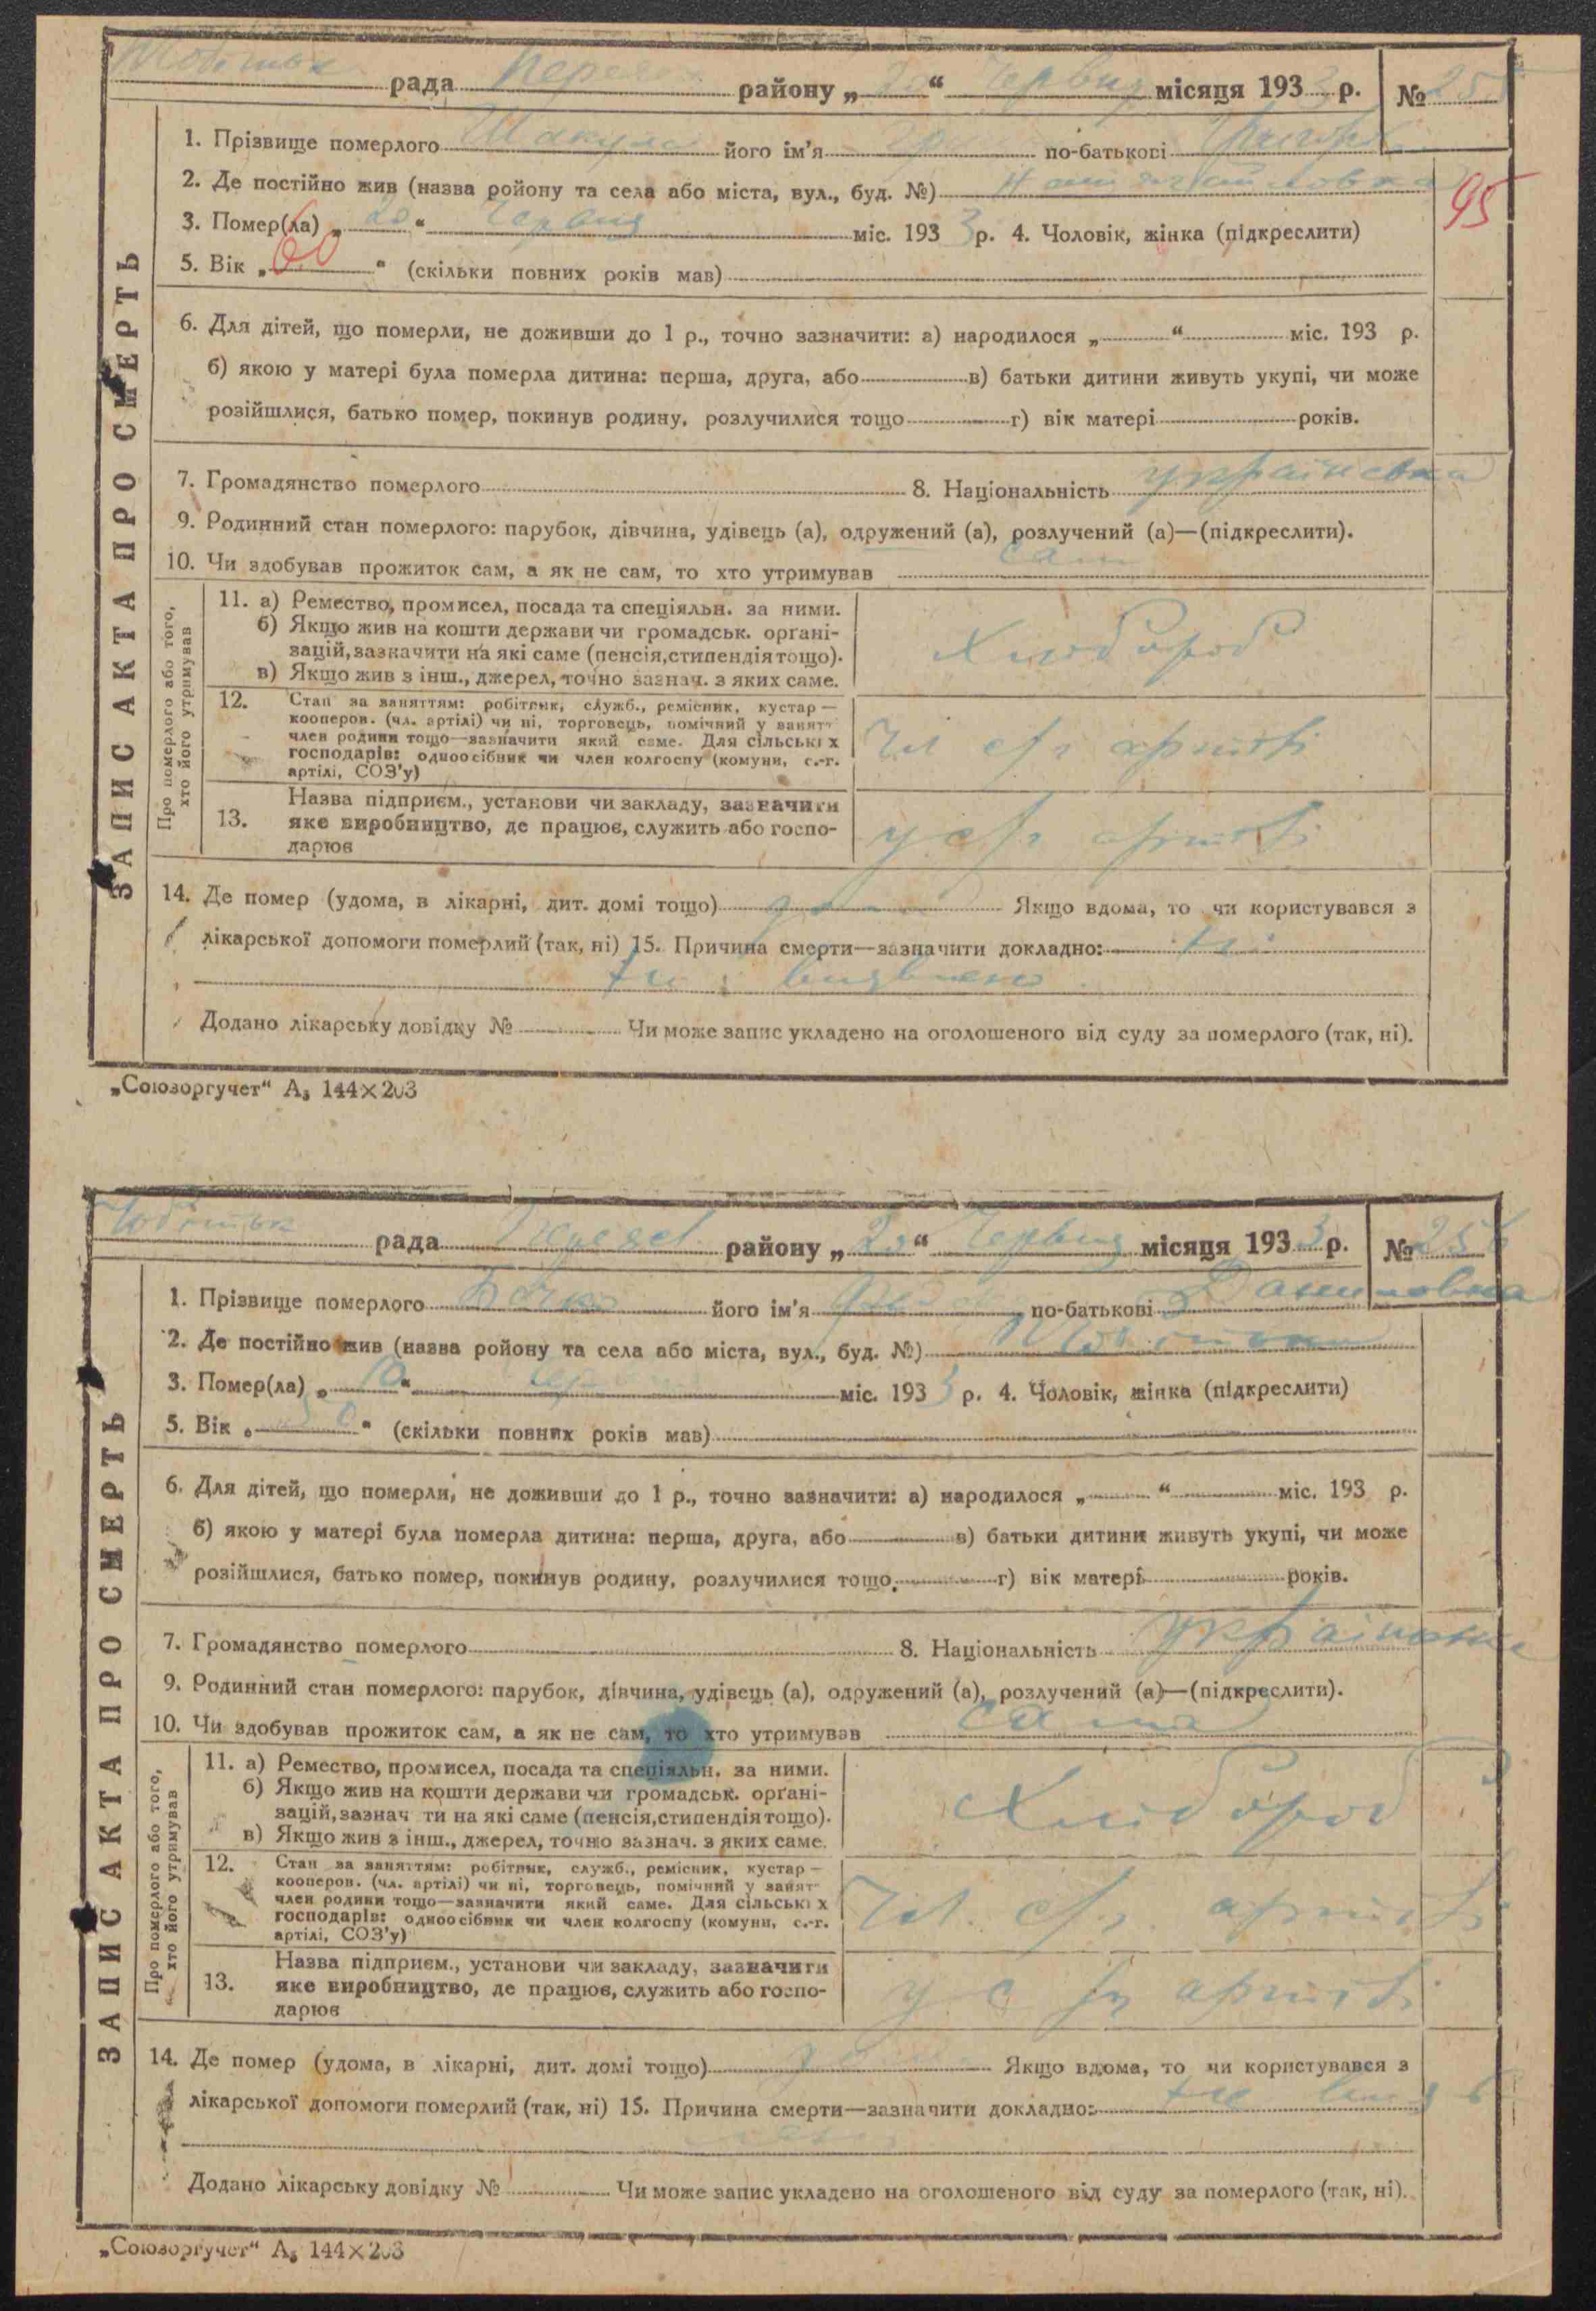 рада Перея району „20“ Червня місяця 1933 р. № 255
1. Прізвище померлого його ім'я по-батькові
2. Де постійно жив (назва ройону та села або міста, вул., буд. №)
3. Помер(ла) „20“ Червня міс. 1933 р. 4. Чоловік, жінка (підкреслити)
95
5. Вік „60“ (скільки повних років мав)
6. Для дітей, що померли, не доживши до 1 р., точно зазначити: а) народилося „ “ міс. 193 р.
б) якою у матері була померла дитина: перша, друга, або в) батьки дитини живуть укупі, чи може
розійшлися, батько помер, покинув родину, розлучилися тощо г) вік матері років.
7. Громадянство померлого 8. Національність українська
9. Родинний стан померлого: парубок, дівчина, удівець (а), одружений (а), розлучений (а)—(підкреслити).
10. Чи здобував прожиток сам, а як не сам, то хто утримував сам
ЗАПИС АКТА ПРО СМЕРТЬ
Про померлого або того,
хто його утримував
11. а) Ремество, промисел, посада та спеціяльн. за ними.
б) Якщо жив на кошти держави чи громадськ. орґані-
зацій, зазначити на які саме (пенсія, стипендія тощо).
в) Якщо жив з інш., джерел, точно зазнач. з яких саме.
Хлібороб
12. Стан за заняттям: робітник, служб., ремісник, кустар —
кооперов. (чл. артілі) чи ні, торговець, помічний у занятт
член родини тощо—зазначити який саме. Для сільських
господарів: одноосібник чи член колгоспу (комуни, с.-г.
артілі, СОЗ'у)
Чл с/г артілі
13. Назва підприєм., установи чи закладу, зазначити
яке виробництво, де працює, служить або госпо-
дарює
у с/г артілі
14. Де помер (удома, в лікарні, дит. домі тощо) Якщо вдома, то чи користувався з
лікарської допомоги померлий (так, ні) 15. Причина смерти—зазначити докладно:
Додано лікарську довідку № Чи може запис укладено на оголошеного від суду за померлого (так, ні).
„Союзоргучет“ А₅ 144×203
рада Переясл району „20“ Червня місяця 1933 р. № 256
1. Прізвище померлого його ім'я по-батькові Даниловна
2. Де постійно жив (назва ройону та села або міста, вул., буд. №)
3. Помер(ла) „ “ міс. 1933 р. 4. Чоловік, жінка (підкреслити)
5. Вік „50“ (скільки повних років мав)
6. Для дітей, що померли, не доживши до 1 р., точно зазначити: а) народилося „ “ міс. 193 р.
б) якою у матері була померла дитина: перша, друга, або в) батьки дитини живуть укупі, чи може
розійшлися, батько помер, покинув родину, розлучилися тощо г) вік матері років.
7. Громадянство померлого 8. Національність українська
9. Родинний стан померлого: парубок, дівчина, удівець (а), одружений (а), розлучений (а)—(підкреслити).
10. Чи здобував прожиток сам, а як не сам, то хто утримував сама
ЗАПИС АКТА ПРО СМЕРТЬ
Про померлого або того,
хто його утримував
11. а) Ремество, промисел, посада та спеціяльн. за ними.
б) Якщо жив на кошти держави чи громадськ. орґані-
зацій, зазнач ти на які саме (пенсія, стипендія тощо).
в) Якщо жив з інш., джерел, точно зазнач. з яких саме.
Хлібороб
12. Стан за заняттям: робітник, служб., ремісник, кустар —
кооперов. (чл. артілі) чи ні, торговець, помічний у занят
член родини тощо—зазначити який саме. Для сільських
господарів: одноосібник чи член колгоспу (комуни, с.-г.
артілі, СОЗ'у)
Чл. с/г. артілі
13. Назва підприєм., установи чи закладу, зазначити
яке виробництво, де працює, служить або госпо-
дарює
у с/г артілі
14. Де помер (удома, в лікарні, дит. домі тощо) Якщо вдома, то чи користувався з
лікарської допомоги померлий (так, ні) 15. Причина смерти—зазначити докладно:
Додано лікарську довідку № Чи може запис укладено на оголошеного від суду за померлого (так, ні).
„Союзоргучет“ А₅ 144×203